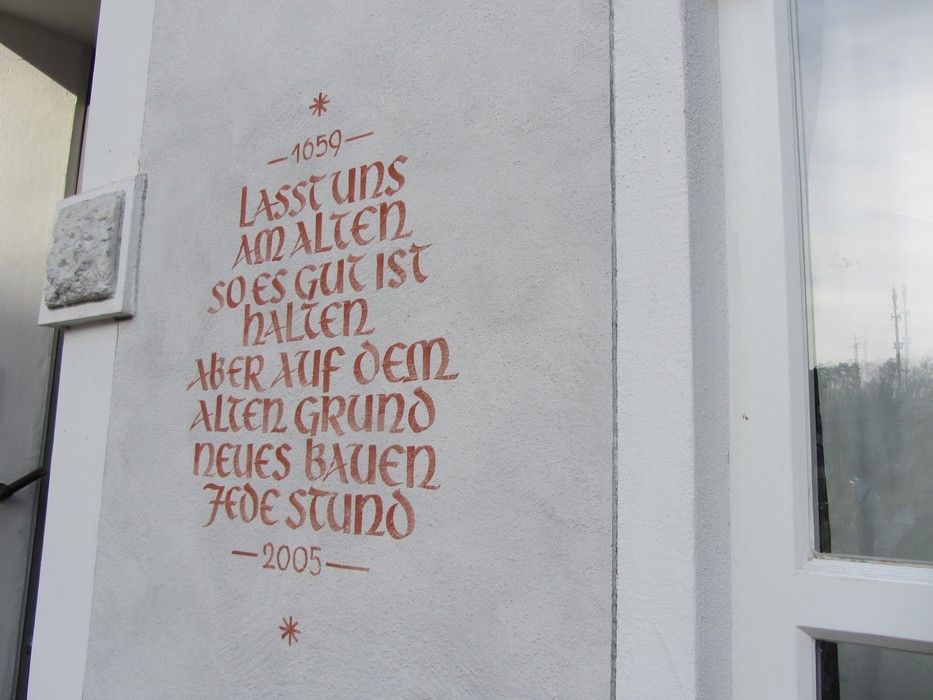 *
—1659—
LASST UNS
AM ALTEN
SO ES GUT IST
HALTEN
ABER AUF DEM
ALTEN GRUND
NEUES BAUEN
JEDE STUND
—2005—
*